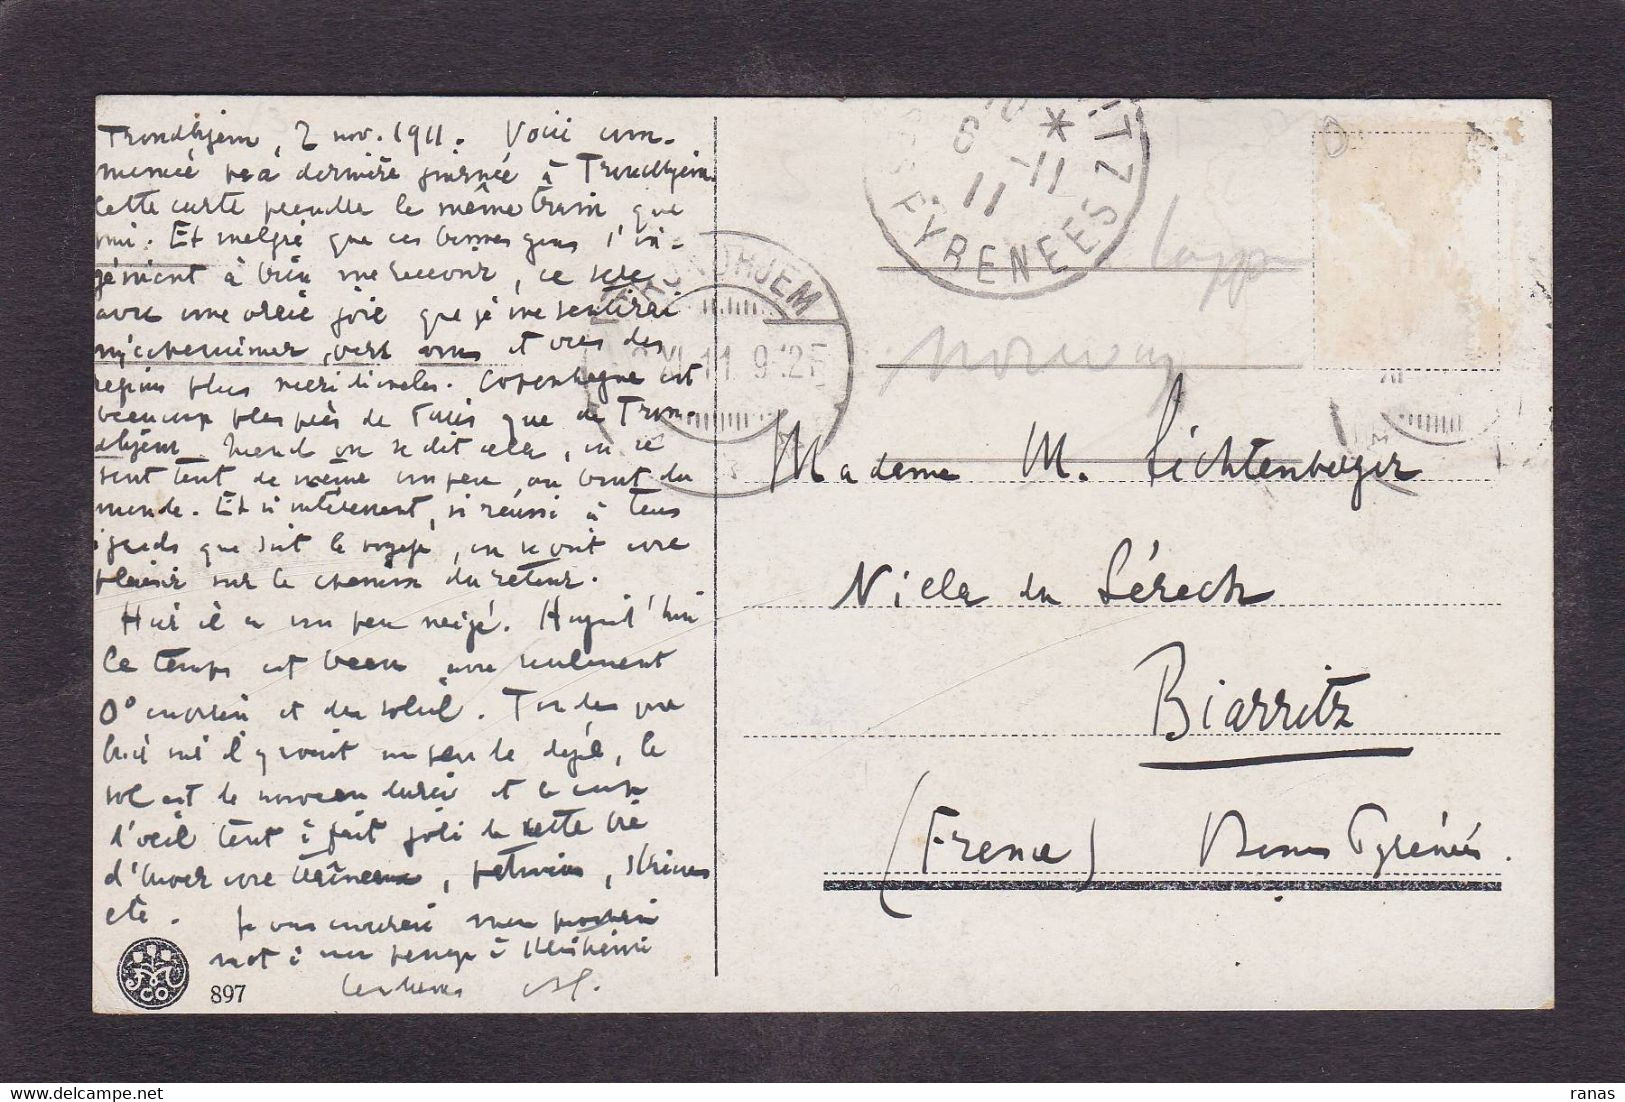 Trondhjem, 2 nov. 1911. Voici com-
mencée ma dernière journée à Trondhjem.
Cette carte prendra le même train que
moi. Et malgré que ces bonnes gens s'in-
génient à bien me recevoir, ce sera
avec une vraie joie que je me sentirai
m'acheminer vers vous et vers des
régions plus méridionales. Copenhague est
beaucoup plus près de Paris que de Tron-
dhjem. Quand on se dit cela, on se
sent tout de même un peu au bout du
monde. Et si intéressant, si réussi à tous
égards que soit le voyage, on se voit avec
plaisir sur le chemin du retour.
Hier il a un peu neigé. Aujourd'hui
le temps est beau avec seulement
0° environ et du soleil. Tandis que
hier il y avait un peu de dégel, le
sol est de nouveau durci et le coup
d'œil tout à fait joli de cette vie
d'hiver avec traîneaux, patineurs, skieurs
etc. Je vous enverrai mon prochain
mot à mon passage à
Tendresses
897
TRONDHJEM
2 XI 11 9-12F
PYRENEES
11-11
Norway
Madame M. Lichtenberger
Villa du Sérech
Biarritz
(France) Basses Pyrénées.